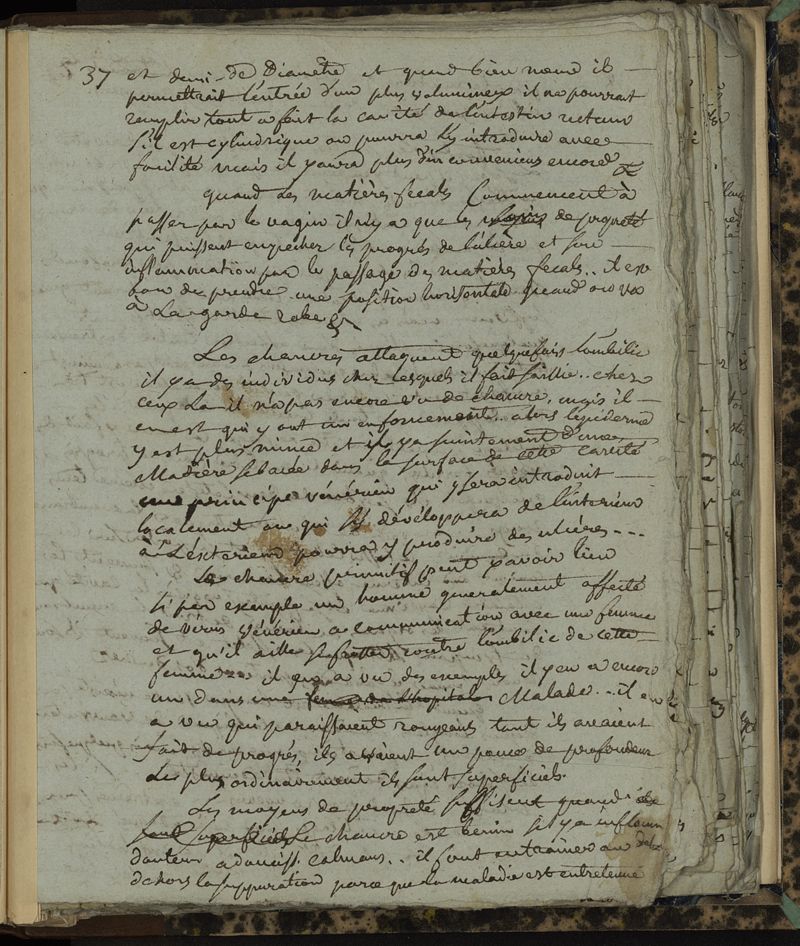 37 et demi-de Diametre et quand bien meme il
permettrait l'entrée d'un plus volumineux il ne pourrait
remplir tout a fait la cavité de l'intestin rectum
s'il est cylindrique on pourra l'y introduire avec
facilité mais il y aura plus d'inconveniens encore
quand des matières fecals Commencent à
passer par le vagin il n'y a que les soins de propreté
qui puissent empecher les progrés de l'ulcère et son
inflammation par le passage des matières fecals.. il est
bon de prendre une position horisontale quand on va
à La garde robe
Les chancres attaquent quelquefois l'ombilic
il y a des individus chez lesquels il fait saillie.. chez
ceux La il n'a pas encore vu de chancre, mais il
en est qui y ont un enfoncement.. alors l'epiderme
y est plus mince et il y a suintement d'une
Matière sebacée dans la surface de cette cavité
un principe vénérien qui y sera introduit
localement ou qui s'y développera de l'interieur
à L'exterieur pourra y produire des ulcères - - -
Le chancre primitif peut y avoir lieu
si par exemple un homme generalement affecté
de virus vénérien a communication avec une femme
et qu'il aille se frotter contre l'ombilic de cette
femme .. il y en a vu des exemples il y en a encore
un dans une femme de l'hopital Malade.. il en
a vu qui paraissaient rongeants tant ils avaient
fait de progrés, ils avaient un pouce de profondeur
Le plus ordinairement ils sont superficiels.
Les moyens de propreté suffisent quand
sont superficiels Le chancre est benin s'il y a inflam
douleur adouciss. calmans.. il faut entrainer au
dehors la suppuration parce que la maladie est entretenue